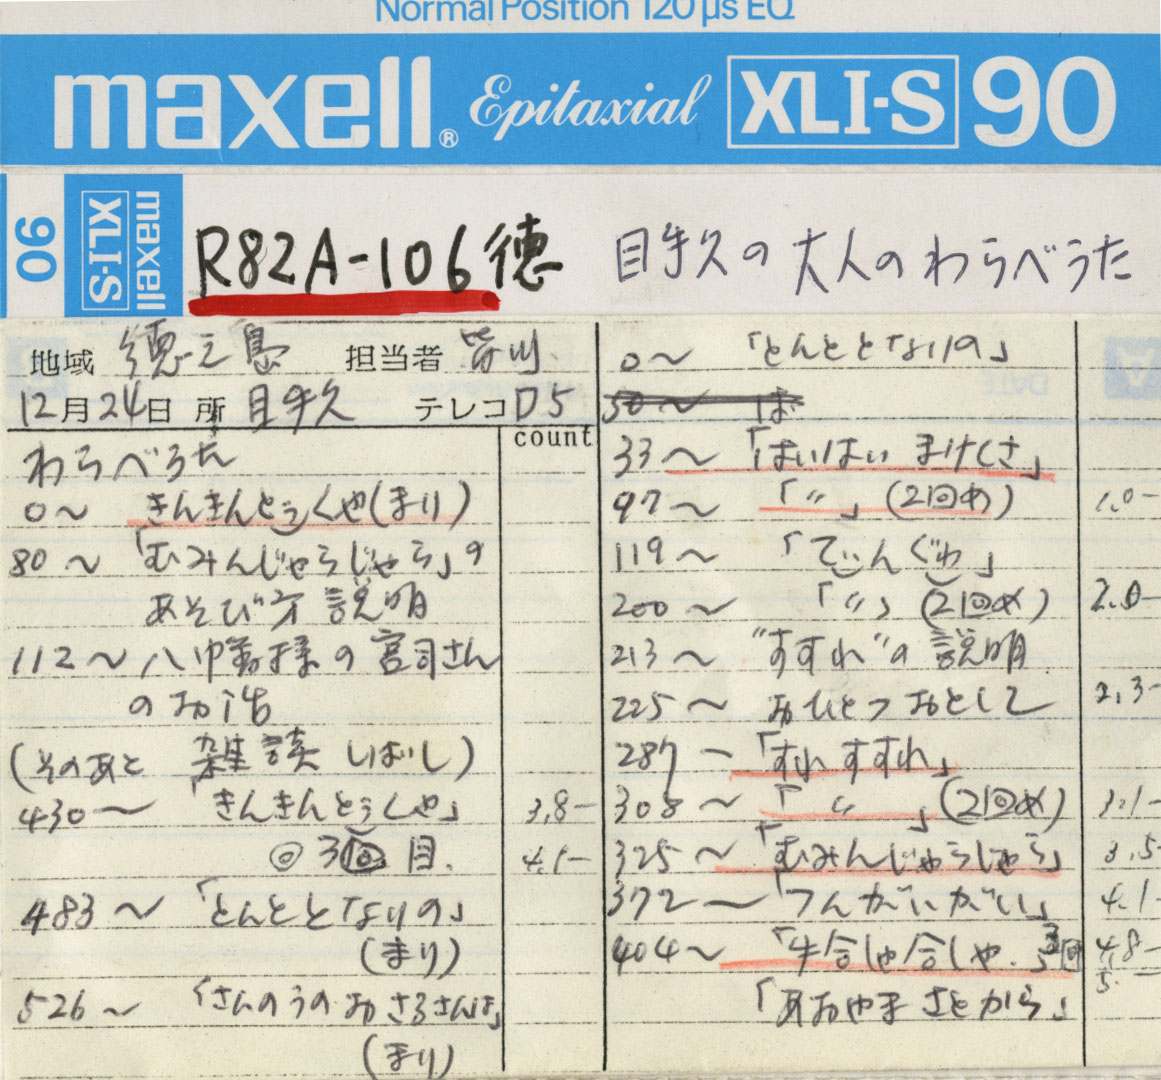 Normal Position 120 μs EQ
maxell® Epitaxial XLI-S 90
90 XLI-S maxell R82A-106 徳 目手久の大人のわらべうた
地域 徳之島 担当者 皆川
12月24日 所 目手久 テレコ D5
count
わらべうた
0〜 きんきんとぅくゃ(まり)
80〜 「むみんじゃらじゃら」の
あそび方説明
112〜 八幡様の宮司さん
のお話
(そのあと 雑談 しばし)
430〜 「きんきんとぅくゃ」 3,8-
◎ 3回目. 4,1-
483〜 「とんととなりの」
(まり)
526〜 「さんのうのおさるさんは」
(まり)
0〜 「とんととなりの」
50〜 は
33〜 「はいはい まけくさ」
97〜 「〃」(2回め) 1,0-
119〜 「てぃんぐゎ」
200〜 「〃」(2回め) 2,0-
213〜 "すすれ"の説明
225〜 おひとつおとして 2,3-
287〜 「すれすすれ」
308〜 「〃」(2回め) 3,1-
325〜 「むみんじゃらじゃら」 3,5-
372〜 「つんがいがい」 4.1-
404〜 「牛合しゃ合しゃ. 4,8-
5.
「あおやまさとから」